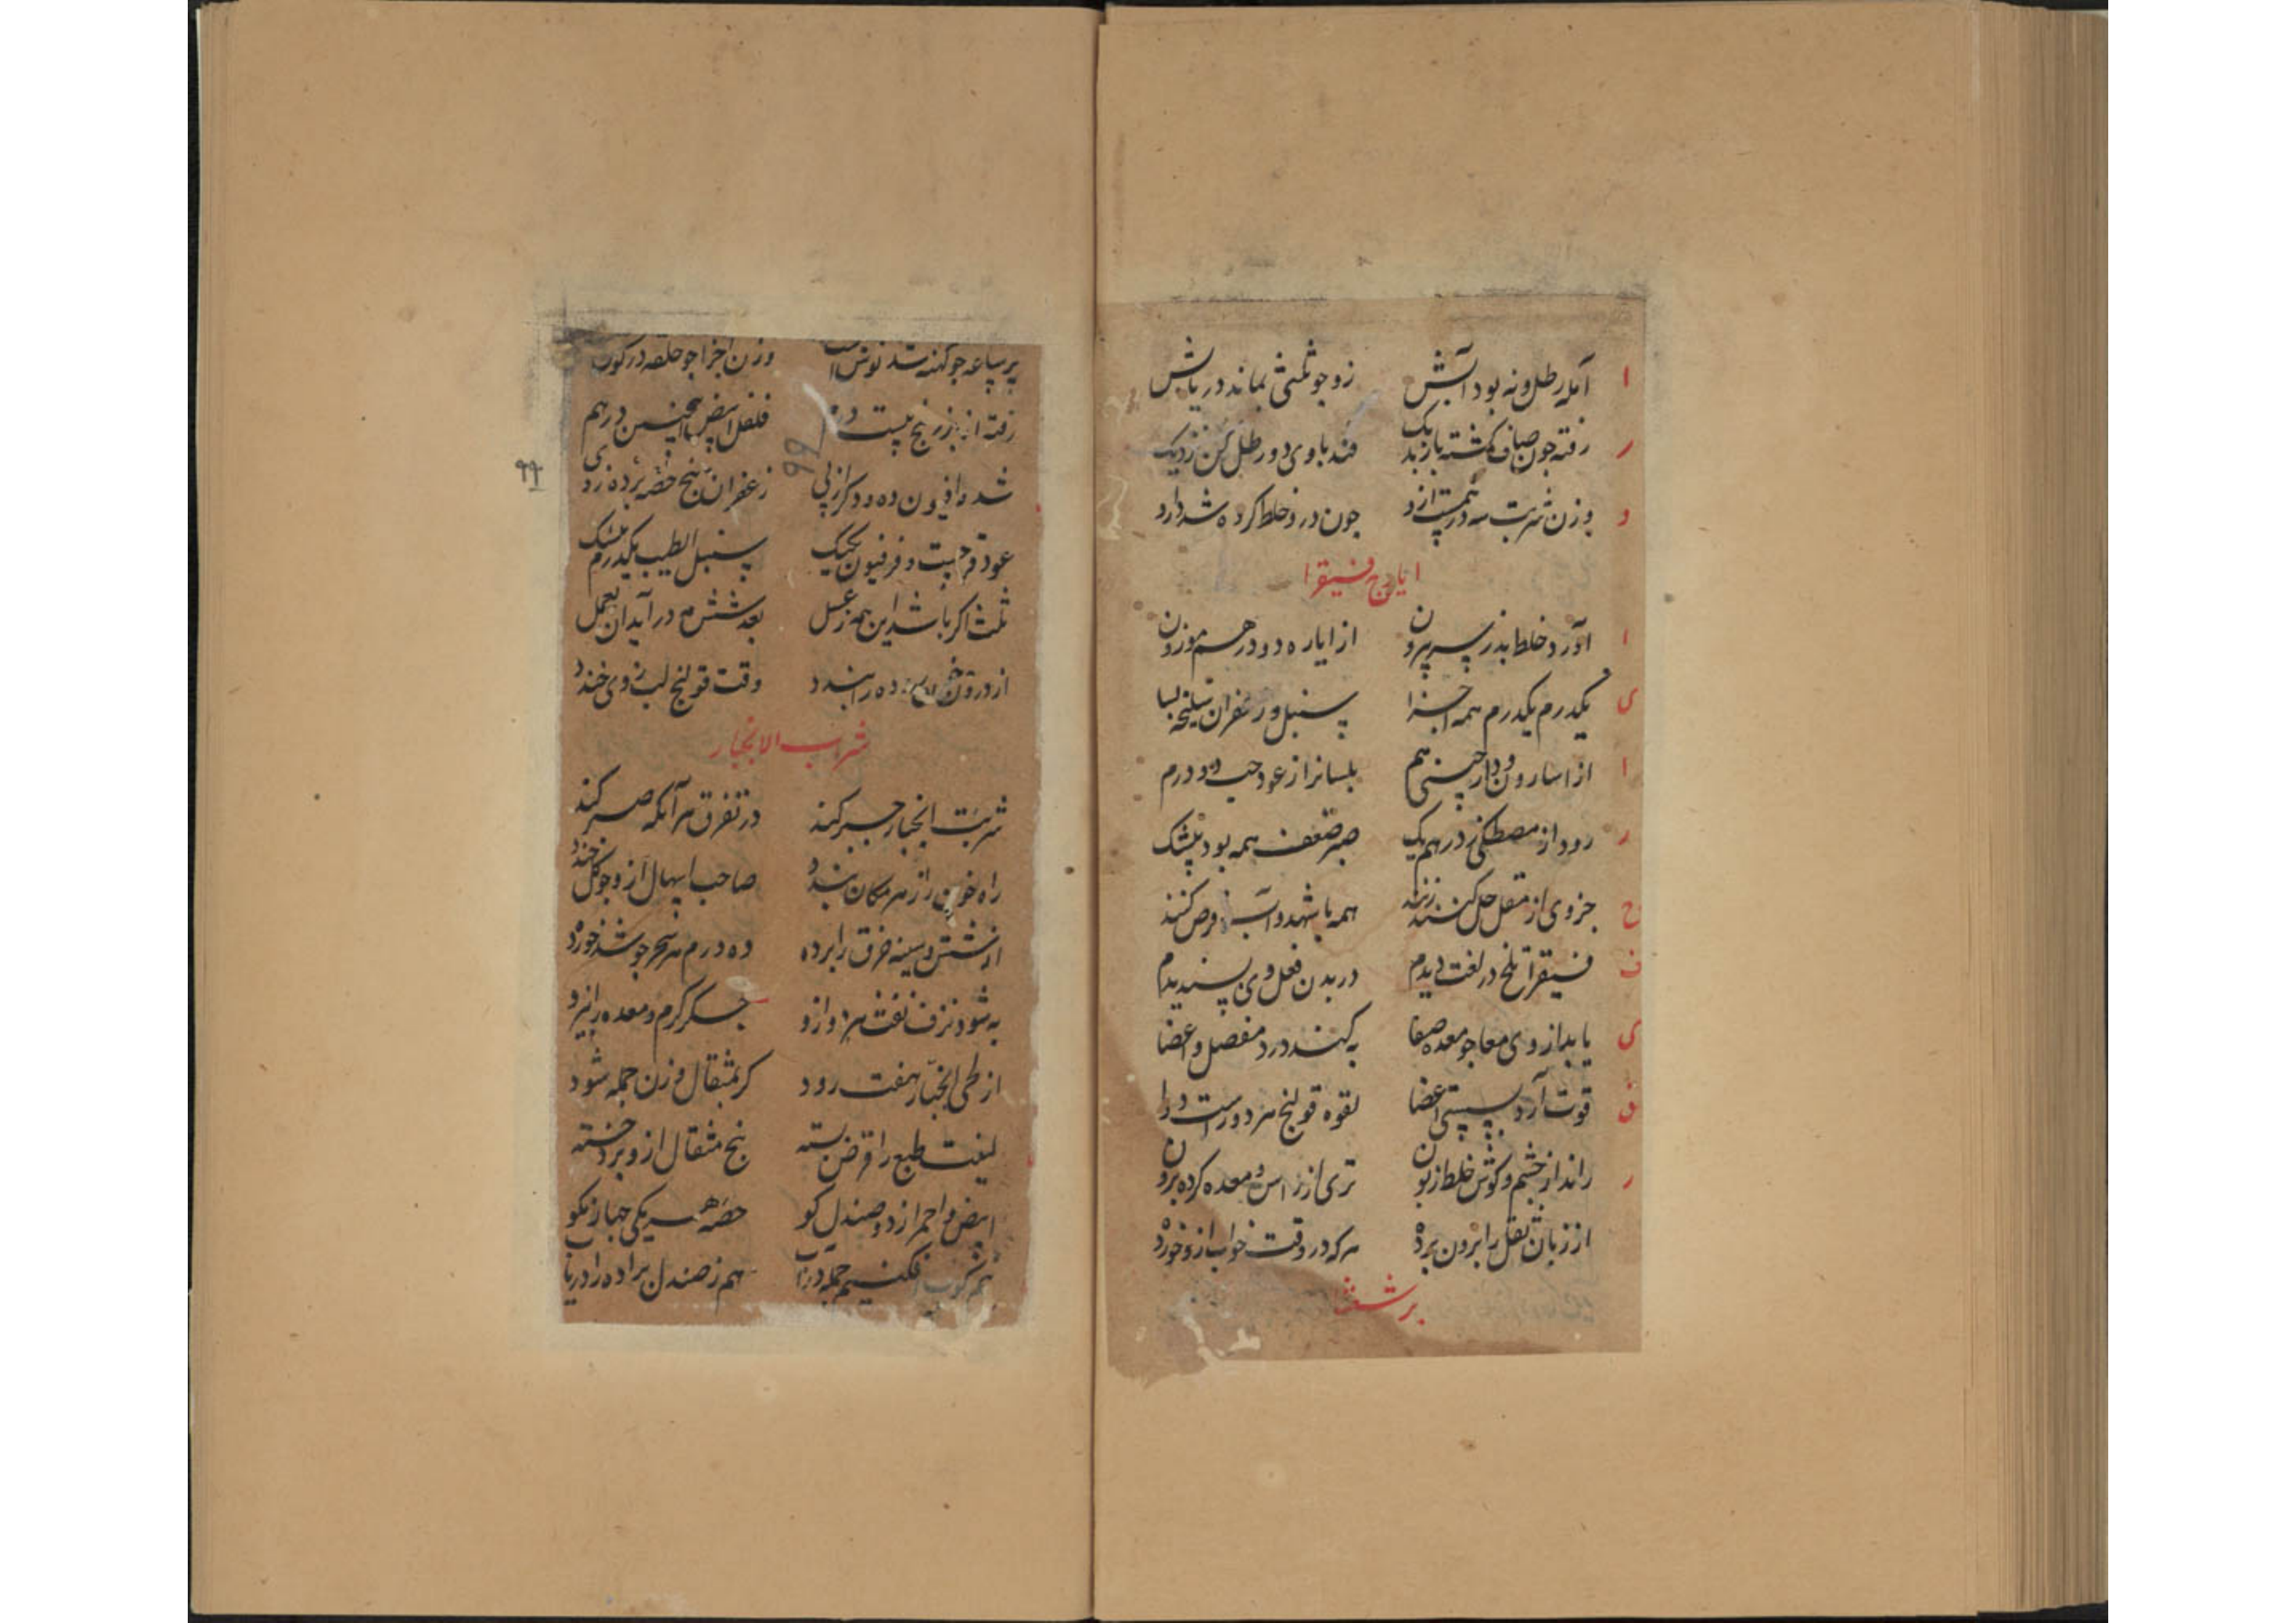 ا آمله رطل و نه بود آبش زو جو ثمنی بماند دریابش
ر رفته جون صاف کشته باز بدیک قند با وی دو رطل کن نزدیک
و وزن شربت سه درهمست ازو جون درو خلط کرده شد دارو
ایارج فیقرا
ا آورد خلط بد ز سر بیرون از ایاره دو درهم موزون
ی یکدرم یکدرم همه اجزا سنبل و زعفران سلیخه بسا
ا از اسارون و دارچینی هم بلسانرا از عود حب دو درم
ر رود از مصطکی درهم یک صبر ضعف همه بود بیشک
ج جزوی از مقل حل کنند همه با شهد و آب قرص کنند
ف فیقرا تلخ در لغت دیدم در بدن فعل وی پسندیدم
ی یابد از وی معا جو معده صفا به کند درد مفصل و اعضا
ق قوت آرد بسستی اعضا لقوه قولنج هر دو راست دوا
ر راند از چشم و کوش خلط زبون تری از راس و معده کرده برون
از زبان ثقل را برون برد هر که در وقت خواب ازو خورد
برشعثا
جو کهنه شد وزن اجزا جو حلقه در کوب
رفته از بزر بنج بیست درم فلفل ابیض باچنین درهم
شد ز افیون ده و دکر از پی زعفران پنج حصه برده ز وی
عود قرحیست و فرفیون یکیک سنبل الطیب یکدرم بیشک
ثلث اکر باشد این همه ز عسل بعد شش مه در آید آن بعمل
از درون وقت قولنج لب ز وی خندد
شربت الانجبار
شربت انجبار جبر کند در تفرق هر آنکه صبر کند
راه خون را ز هر مکان بندد صاحب اسهال ازو جو کل خندد
از شش و سینه خرق را برده ده درم هر سحر جو شد خورده
به شود نزف نفث هر دو ازو جکر کرم و معده را نیرو
از طری انجبار هفت رود کر بمثقال وزن جمله شود
لیفت طبع را قرض بسته پنج مثقال ازو برد خسته
ابیض و احمر از دو صندل کو حصه هر یکی جهار نکو
نیم کوب افکنیم جمله در آب هم ز صندل براده را دریاب
۹۹